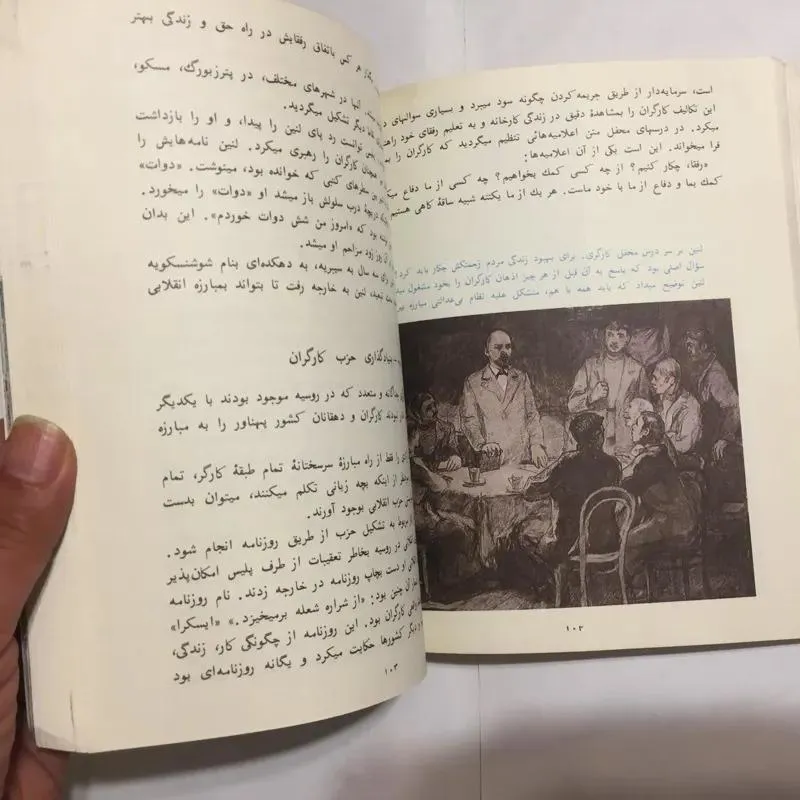 است، سرمایه‌دار از طریق جریمه‌کردن چگونه سود میبرد و بسیاری سوالهای
این تکالیف کارگران را بمشاهدهٔ دقیق در زندگی کارخانه و به تعلیم رفقای خود
میکرد. در درسهای محفل متن اعلامیه‌هائی تنظیم میگردید که کارگران را
فرا میخواند. این است یکی از آن اعلامیه‌ها:
«رفقا، چکار کنیم؟ از چه کسی کمك بخواهیم؟ چه کسی از ما دفاع
کمك بما و دفاع از ما با خود ماست. هر یك از ما یکتنه شبیه ساقهٔ کاهی هستیم
لنین بر سر درس محفل کارگری. برای بهبود زندگی مردم زحمتکش چکار باید کرد؟
سؤال اصلی بود که پاسخ به آن قبل از هر چیز اذهان کارگران را بخود مشغول
لنین توضیح میداد که باید همه با هم، متشکل علیه نظام بی‌عدالتی مبارزه
۱۰۲
هر کس باتفاق رفقایش در راه حق و زندگی بهتر
آنها در شهرهای مختلف، در پترزبورگ، مسکو،
دیگر تشکیل میگردید.
توانست رد پای لنین را پیدا، و او را بازداشت
همچنان کارگران را رهبری میکرد. لنین نامه‌هایش را
سطرهای کتبی که خوانده بود، مینوشت. «دوات»
دریچهٔ درب سلولش باز میشد او «دوات» را میخورد.
بود که «امروز من شش دوات خوردم». این بدان
روز زود مزاحم او میشد.
سه سال به سیبریه، به دهکده‌ای بنام شوشنسکویه
تبعید، لنین به خارجه رفت تا بتواند بمبارزه انقلابی
بنیادگذاری حزب کارگران
جداگانه و متعدد که در روسیه موجود بودند با یکدیگر
نبودند. کارگران و دهقانان کشور پهناور را به مبارزه
را فقط از راه مبارزهٔ سرسختانهٔ تمام طبقهٔ کارگر، تمام
از اینکه بچه زبانی تکلم میکنند، میتوان بدست
حزب انقلابی بوجود آورند.
مربوط به تشکیل حزب از طریق روزنامه انجام شود.
در روسیه بخاطر تعقیبات از طرف پلیس امکان‌پذیر
او دست بچاپ روزنامه در خارجه زدند. نام روزنامه
آن چنین بود: «از شراره شعله برمیخیزد.» «ایسکرا»
کارگران بود. این روزنامه از چگونگی کار، زندگی،
دیگر کشورها حکایت میکرد و یگانه روزنامه‌ای بود
۱۰۳